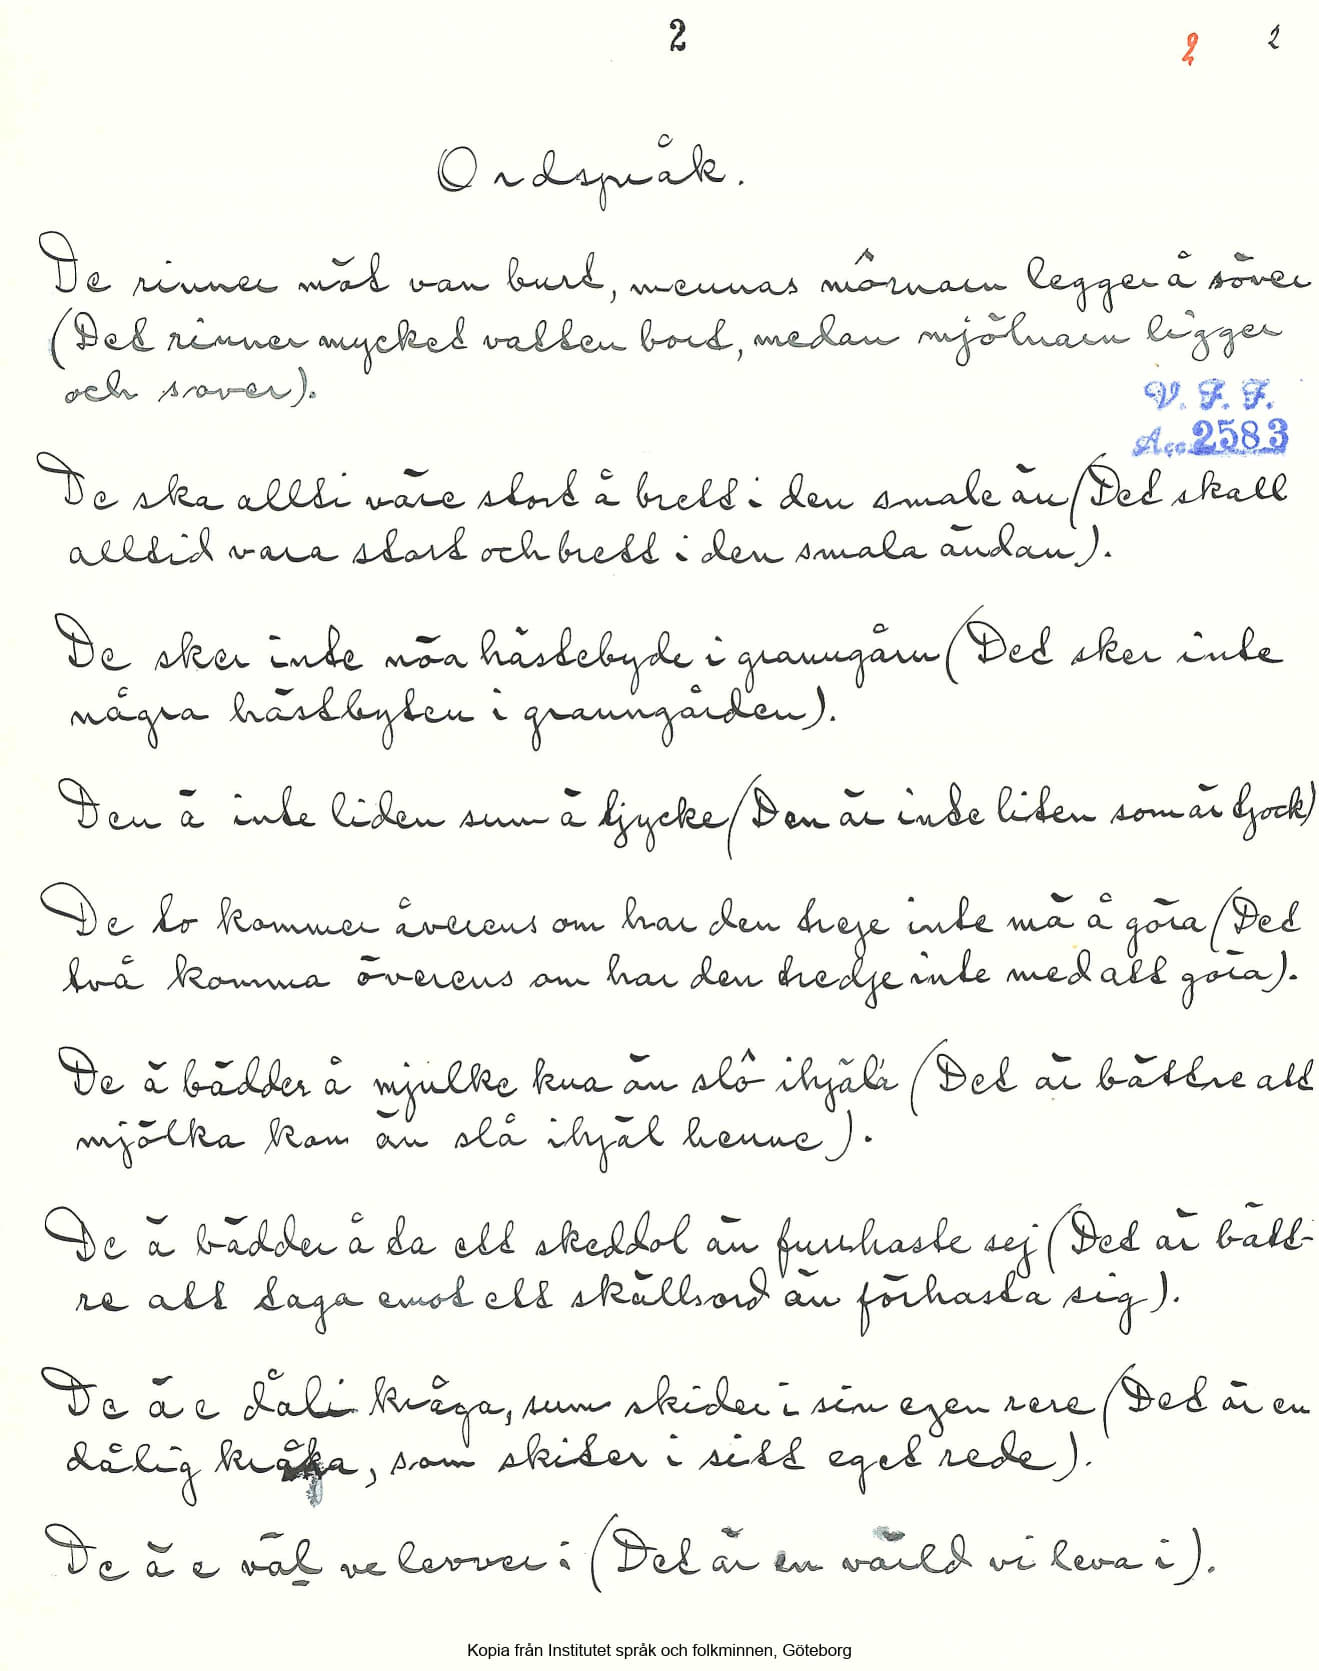 2
2 2
Ordspråk.
De rinner möt van burt, mennas môrnarn legger å söver
(Det rinner mycket vatten bort, medan mjölnarn ligger
och sover).
V. F. F.
Acc. 2583
De ska allti väre stort å brett i den smale än (Det skall
alltid vara stort och brett i den smala ändan).
De sker inte nöa hästebyde i granngårn (Det sker inte
några hästbyten i granngården).
Den ä inte liden sum ä tjycke (Den är inte liten som är tjock)
De to kommer åverens om har den treje inte mä å göra (Det
två komma överens om har den tredje inte med att göra).
De ä bädder å mjulke kua än slô ihjäl'a (Det är bättre att
mjölka kon än slå ihjäl henne).
De ä bädder å ta ett skeddol än furrhaste sej (Det är bätt-
re att taga emot ett skällsord än förhasta sig).
De ä e dåli kråga, sum skider i sin egen rere (Det är en
dålig kråka, som skiter i sitt eget rede).
De ä e väl ve levver i (Det är en värld vi leva i).
Kopia från Institutet språk och folkminnen, Göteborg